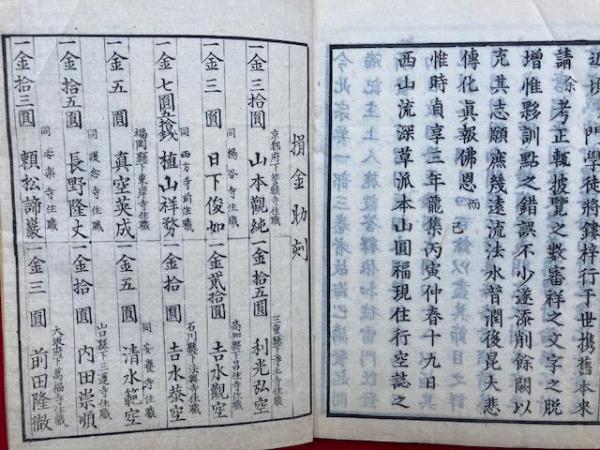 近頃門學徒將鏤梓行于世携舊本來
請余考正輒披覽之數審祥之文字之脱
增惟夥訓點之錯誤不少遂添削餘闕以
充其志願庶幾遠流法水普潤後昆大悲
傳化眞報佛恩而已
惟時貞享三年龍集丙寅仲春十九日
西山流深草派本山圓福現住行空誌之
捐金助刻
一金三拾圓 京都府下誓願寺住職 山本觀純
一金三圓 同 楊谷寺住職 日下俊如
一金七圓五拾錢 同 西方寺前住職 植山祥務
一金五圓 福岡縣下東岸寺住職 真空英成
一金拾五圓 同 護念寺住職 長野隆丈
一金拾三圓 同 安楽寺住職 頼松諦巖
一金拾五圓 三重縣下 寺住職 利光弘空
一金貳拾圓 高知縣下 寺住職 吉水觀空
一金拾圓 石川縣下 寺住職 吉水恭空
一金五圓 同 安養寺住職 清水範空
一金拾圓 山口縣下三蓮寺住職 内田崇順
一金三圓 大坂府下萬福寺住職 前田隆徹